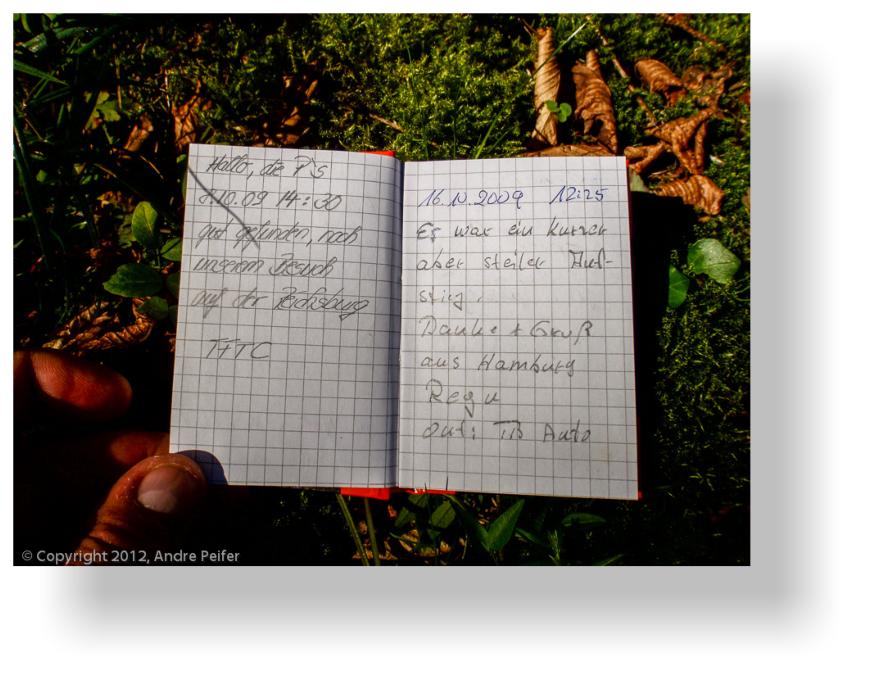 Hallo, die P's
8.10.09 14:30
gut gefunden, nach
unserem Besuch
auf der Reichsburg
TFTC
16.10.2009 12:25
Es war ein kurzer
aber steiler Auf-
stieg.
Danke + Gruß
aus Hamburg
out: TB Auto
© Copyright 2012, Andre Peifer